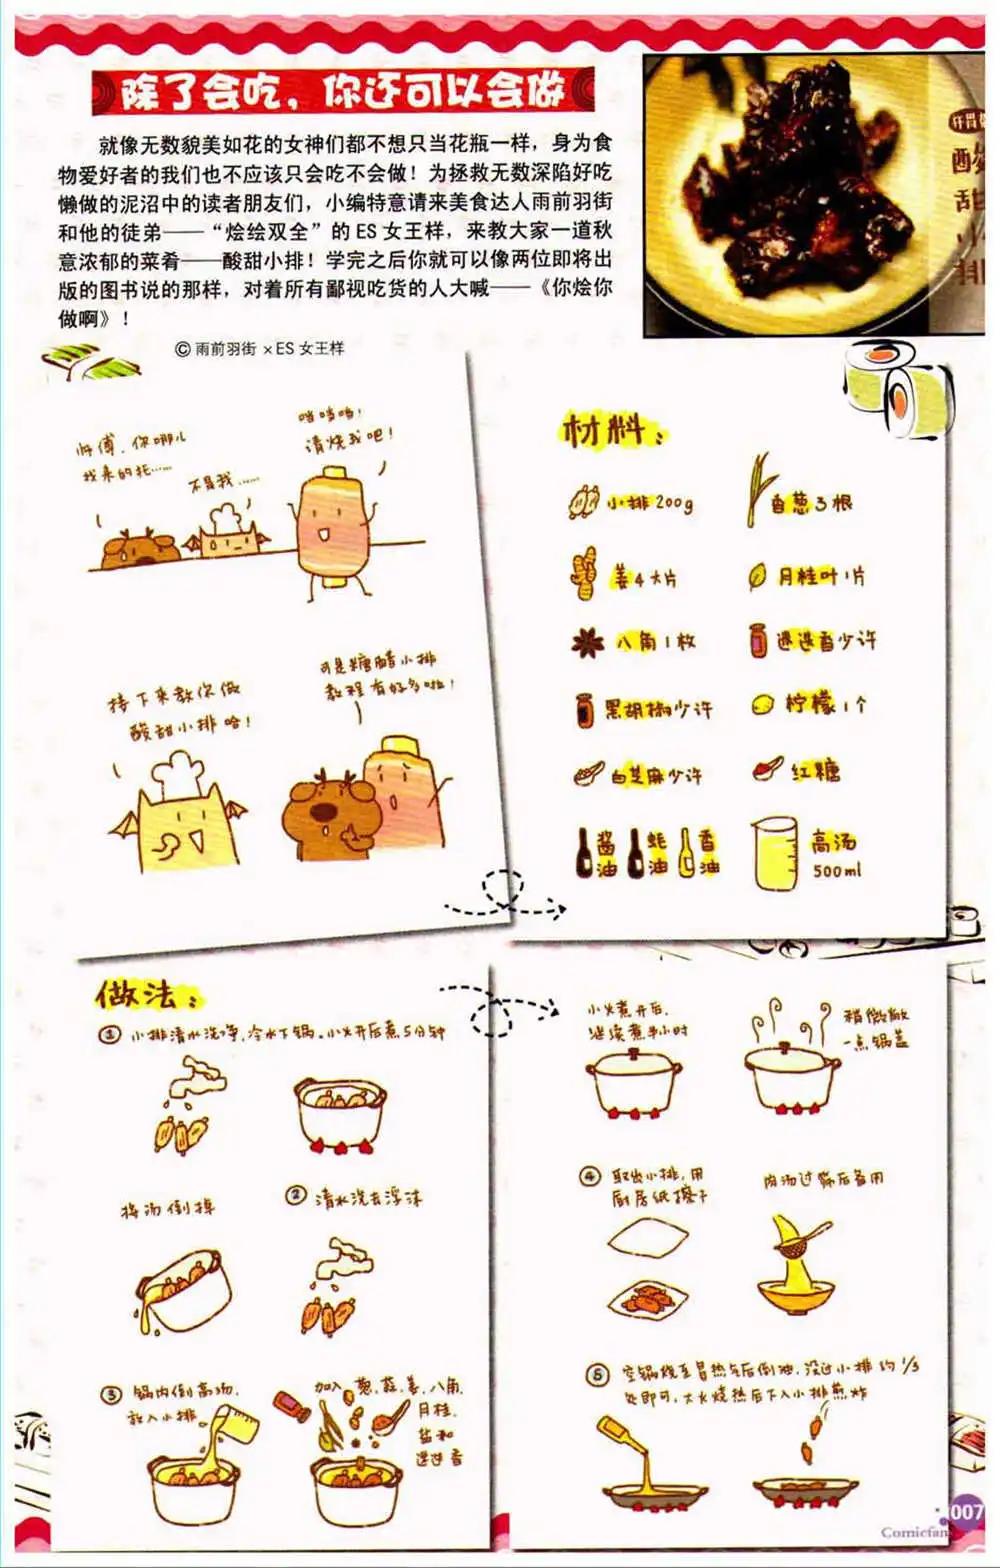 除了会吃，你还可以会做
就像无数貌美如花的女神们都不想只当花瓶一样，身为食
物爱好者的我们也不应该只会吃不会做！为拯救无数深陷好吃
懒做的泥沼中的读者朋友们，小编特意请来美食达人雨前羽街
和他的徒弟——“烩绘双全”的 ES 女王样，来教大家一道秋
意浓郁的菜肴——酸甜小排！学完之后你就可以像两位即将出
版的图书说的那样，对着所有鄙视吃货的人大喊——《你烩你
做啊》！
© 雨前羽街 ×ES 女王样
师傅，你哪儿
找来的托……
不是我……
当当当！
请烧我吧！
接下来教你做
酸甜小排哈！
可是糖醋小排
教程有好多啦！
材料：
小排 200g
香葱 3 根
姜 4 大片
月桂叶 1 片
八角 1 枚
迷迭香少许
黑胡椒少许
柠檬 1 个
白芝麻少许
红糖
酱油
蚝油
香油
高汤
500ml
做法：
① 小排清水洗净，冷水下锅。小火开后煮 5 分钟
将汤倒掉
② 清水洗去浮沫
③ 锅内倒高汤，
放入小排
加入葱、蒜、姜、八角、
月桂、
盐和
迷迭香
小火煮开后，
继续煮半小时
稍微敞
一点锅盖
④ 取出小排，用
厨房纸擦干
肉汤过筛后备用
⑤ 空锅烧至冒热气后倒油，没过小排约 1/3
处即可，大火烧热后下入小排煎炸
007
Comicfan